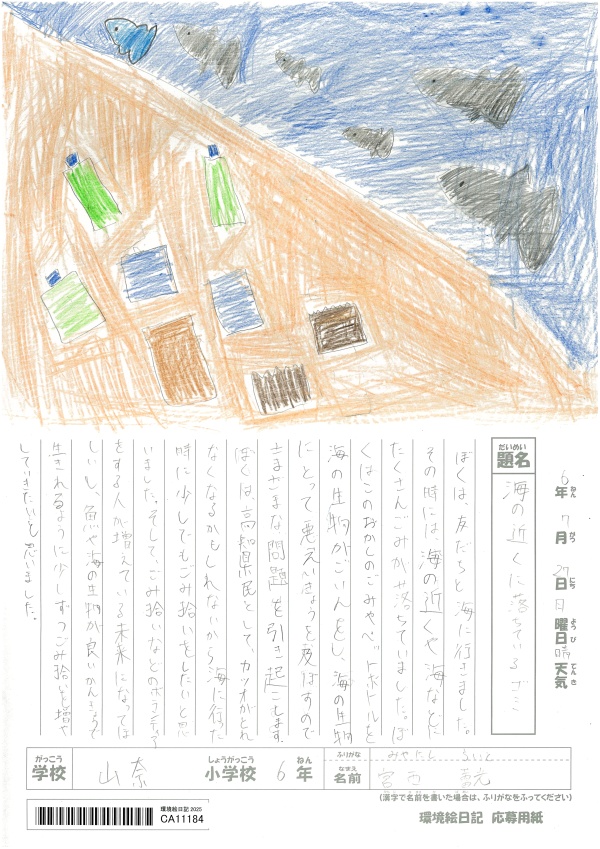 6年 7月 27日 日曜日 晴天気
ねん がつ にち ようび てんき
だいめい
題名
海の近くに落ちているゴミ
ぼくは、友だちと海に行きました。
その時には、海の近くや海などに
たくさんごみが落ちていました。ぼ
くはこのおかしのごみやペットボトルを
海の生物がごいんをし、海の生物
にとって悪えいきょうを及ぼすので
さまざまな問題を引き起こします。
ぼくは、高知県民として、カツオがとれ
なくなるかもしれないから、海に行た
時に少しでもごみ拾いをしたいと思
いました。そして、ごみ拾いなどのボランティア
をする人が増えている未来になってほ
しいし、魚や海の生物が良いかんきょうで
生きれるように少しずつごみ拾いを増や
していきたいと思いました。
がっこう しょうがっこう ねん
学校 山奈 小学校 6年
ふりがな みやたに るいと
なまえ
名前 宮 元
(漢字で名前を書いた場合は、ふりがなをふってください)
環境絵日記 2025
CA11184
環境絵日記 応募用紙